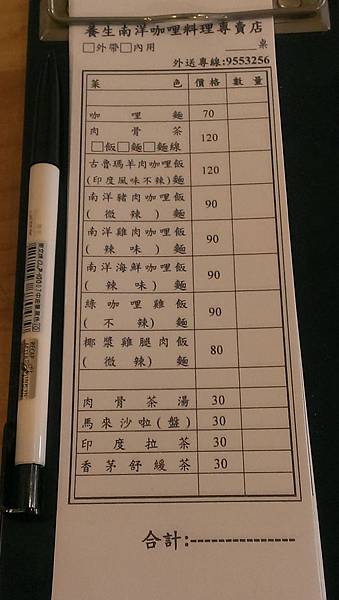 養生南洋咖哩料理專賣店
□外帶□內用 ____桌
外送專線:9553256
菜色 價格 數量
咖哩麵 70
肉骨茶 120
□飯□麵□麵線
古魯瑪羊肉咖哩飯 120
(印度風味不辣)麵
南洋豬肉咖哩飯 90
(微辣)麵
南洋雞肉咖哩飯 90
(辣味)麵
南洋海鮮咖哩飯 90
(辣味)麵
綠咖哩雞飯 90
(不辣)麵
椰漿雞腿肉飯 80
(微辣)麵
肉骨茶湯 30
馬來沙啦(盤) 30
印度拉茶 30
香茅舒緩茶 30
合計:---------------